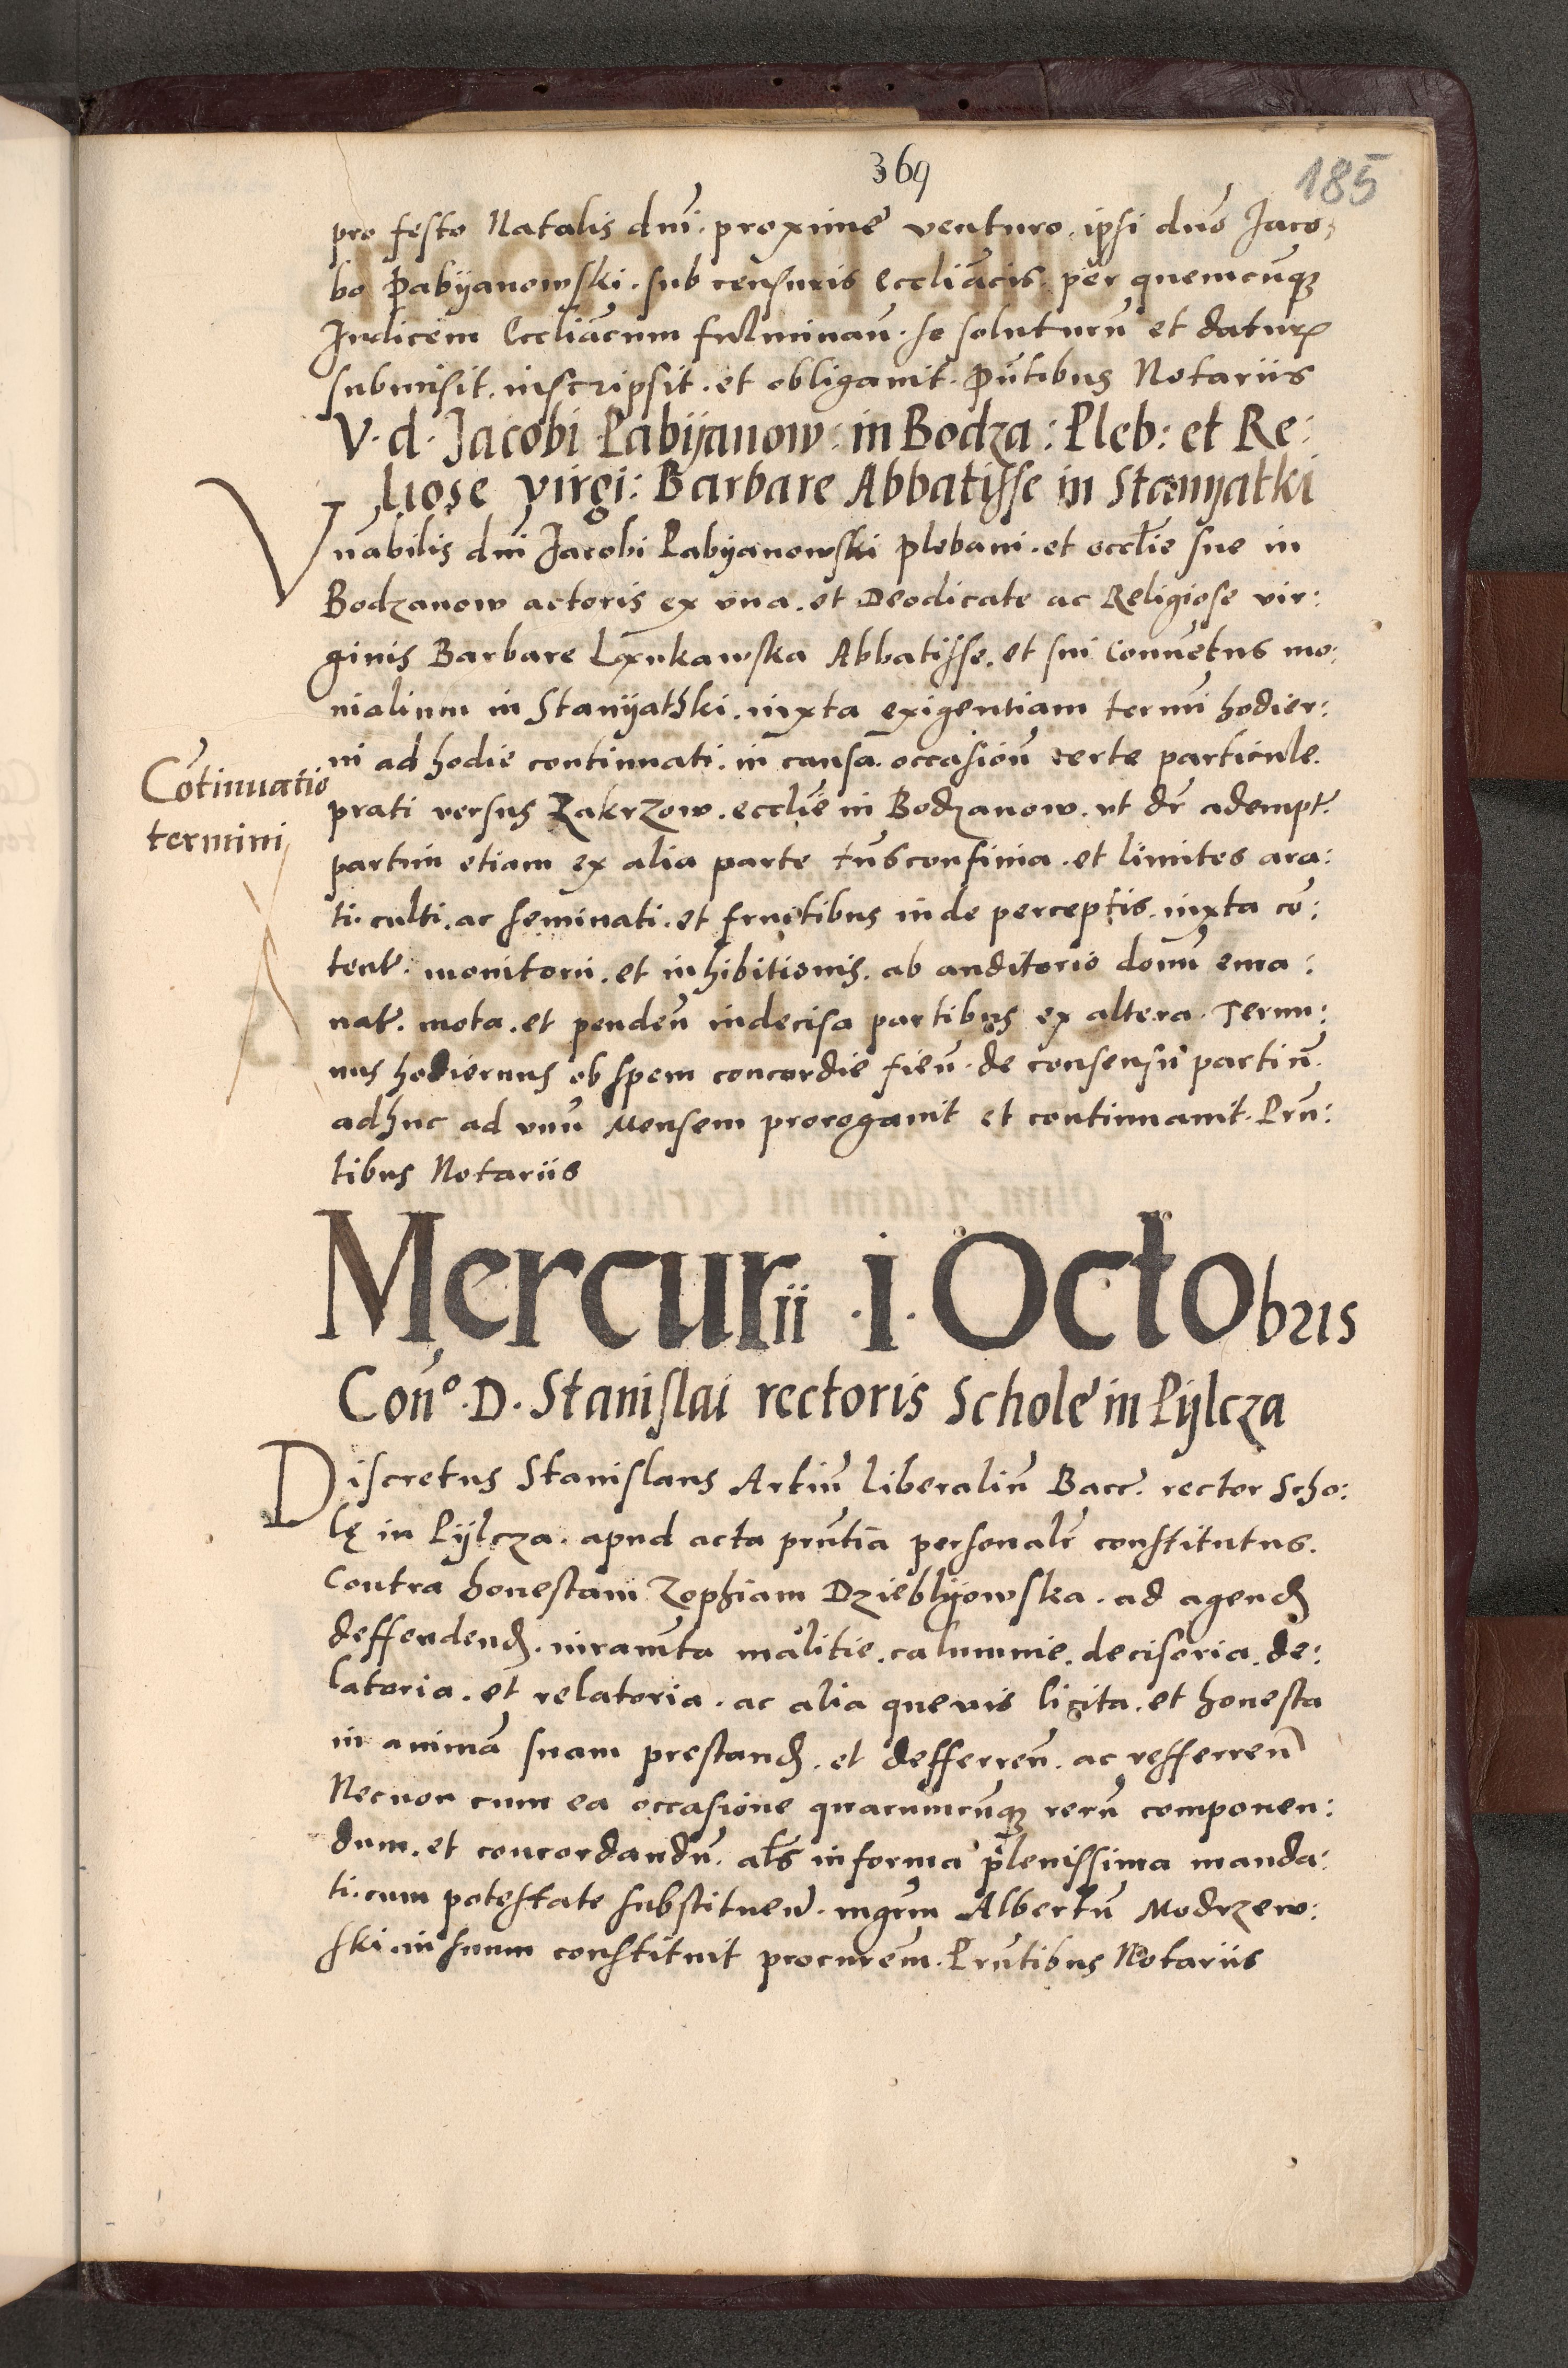 369
185
pro festo Natalis dnī. proxime venturo. ipsi dnō Jaco:
bo Pabyanowski. sub censuris eccliācis per quemcūqȝ
Judicem eccliācum fulminan̄. se soluturū et daturū
submisit. inscripsit. et obligauit. Pn̄tibus Notariis
V. d. Jacobi Pabiyanow: in Bodza: Pleb: et Re:
liose virgi: Barbare Abbatisse in Stanyatki
Vn̄abilis dnī Jacobi Pabyanowski plebani. et eccl̄ie sue in
Bodzanow actoris ex vna. et Deodicate ac Religiose vir:
ginis Barbare Abbatisse. et sui Conuētus mo:
nialium in Staniyathki. iuxta exigentiam termī hodier:
ni ad hodie continuati. in causa occasion̄ certe particule
Cōtinuatio
termini
prati versus Zakrzow. eccl̄ie in Bodzanow. vt dr̄ adempt.
partim etiam ex alia parte confinia. et limites ara:
ti. culti. ac seminati. et fructibus inde perceptis. iuxta cō:
tent. monitorii. et inhibitionis. ab auditorio domī ema:
nat. mota. et penden̄ indecisa partibus ex altera. Termi:
nus hodiernus ob spem concordie fien̄. de consensu partiū.
adhuc ad vnū Mensem prorogauit et continuauit. Prn̄:
tibus Notariis
Mercurii .i. Octobris
Con̄º. D. Stanislai rectoris Schole in Pijlcza
Discretus Stanislaus Artiū liberaliū Bacc. rector Scho:
lę in Pijlcza. apud acta prn̄tia personalr̄ constitutus.
Contra honestam Zophiam Dzieblijowska. ad agend
deffendend. iuramn̄ta malitie. calumnie. decisoria. de:
latoria. et relatoria. ac alia queuis licita. et honesta
in animā suam prestand. et defferren̄. ac refferren̄
Necnon cum ea occasione quarumcūqȝ rerū componen:
dum. et concordandū. al̄s in forma plenissima manda:
ti. cum potestate substituen̄. mgrm̄ Albertū Modrzew:
ski. in suum constituit procurēm. Prn̄tibus Notariis